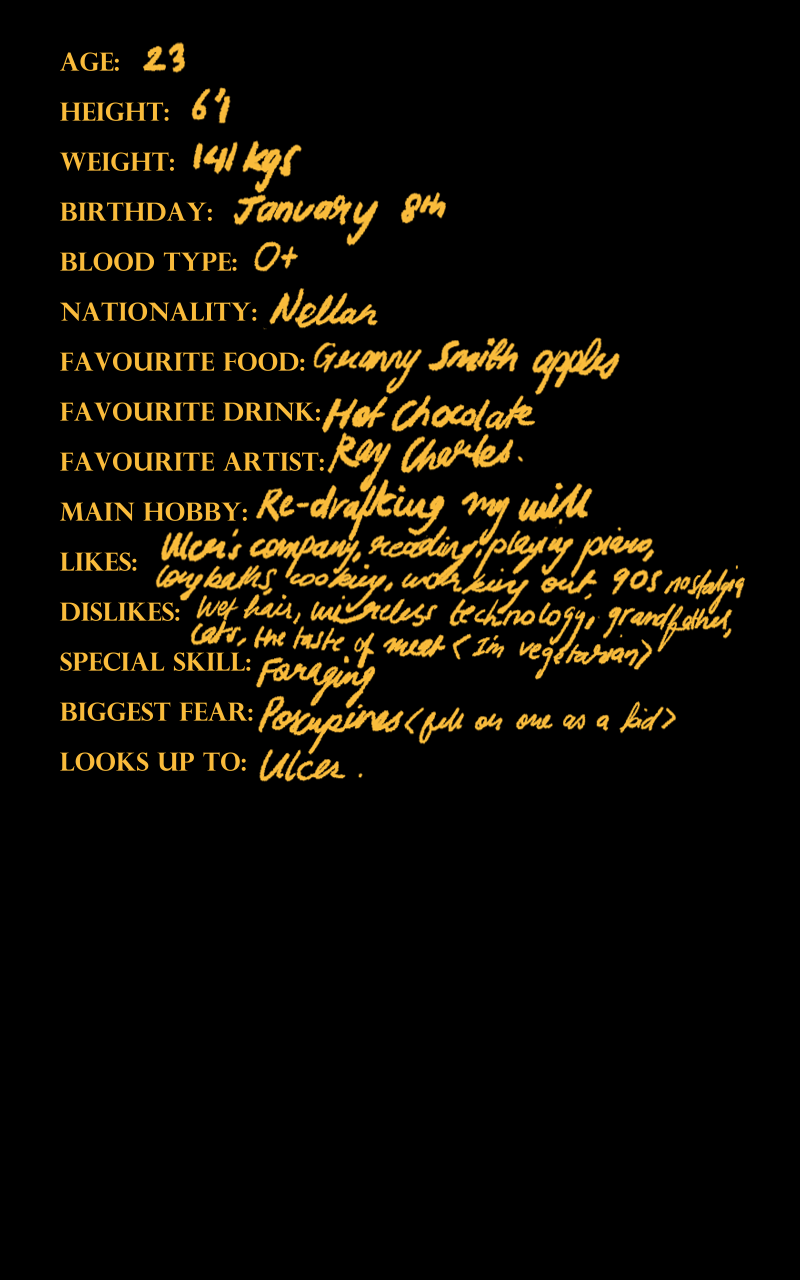 AGE: 23
HEIGHT: 6'1
WEIGHT: 141 kgs
BIRTHDAY: January 8th
BLOOD TYPE: O+
NATIONALITY: Nellan
FAVOURITE FOOD: Granny Smith apples
FAVOURITE DRINK: Hot Chocolate
FAVOURITE ARTIST: Ray Charles.
MAIN HOBBY: Re-drafting my will
LIKES: Ulcer's company, reading, playing piano,
long baths, cooking, working out, 90s nostalgia
DISLIKES: Wet hair, wireless technology, grandfather,
cats, the taste of meat (I'm vegetarian)
SPECIAL SKILL: Foraging
BIGGEST FEAR: Porcupines (fell on one as a kid)
LOOKS UP TO: Ulcer.